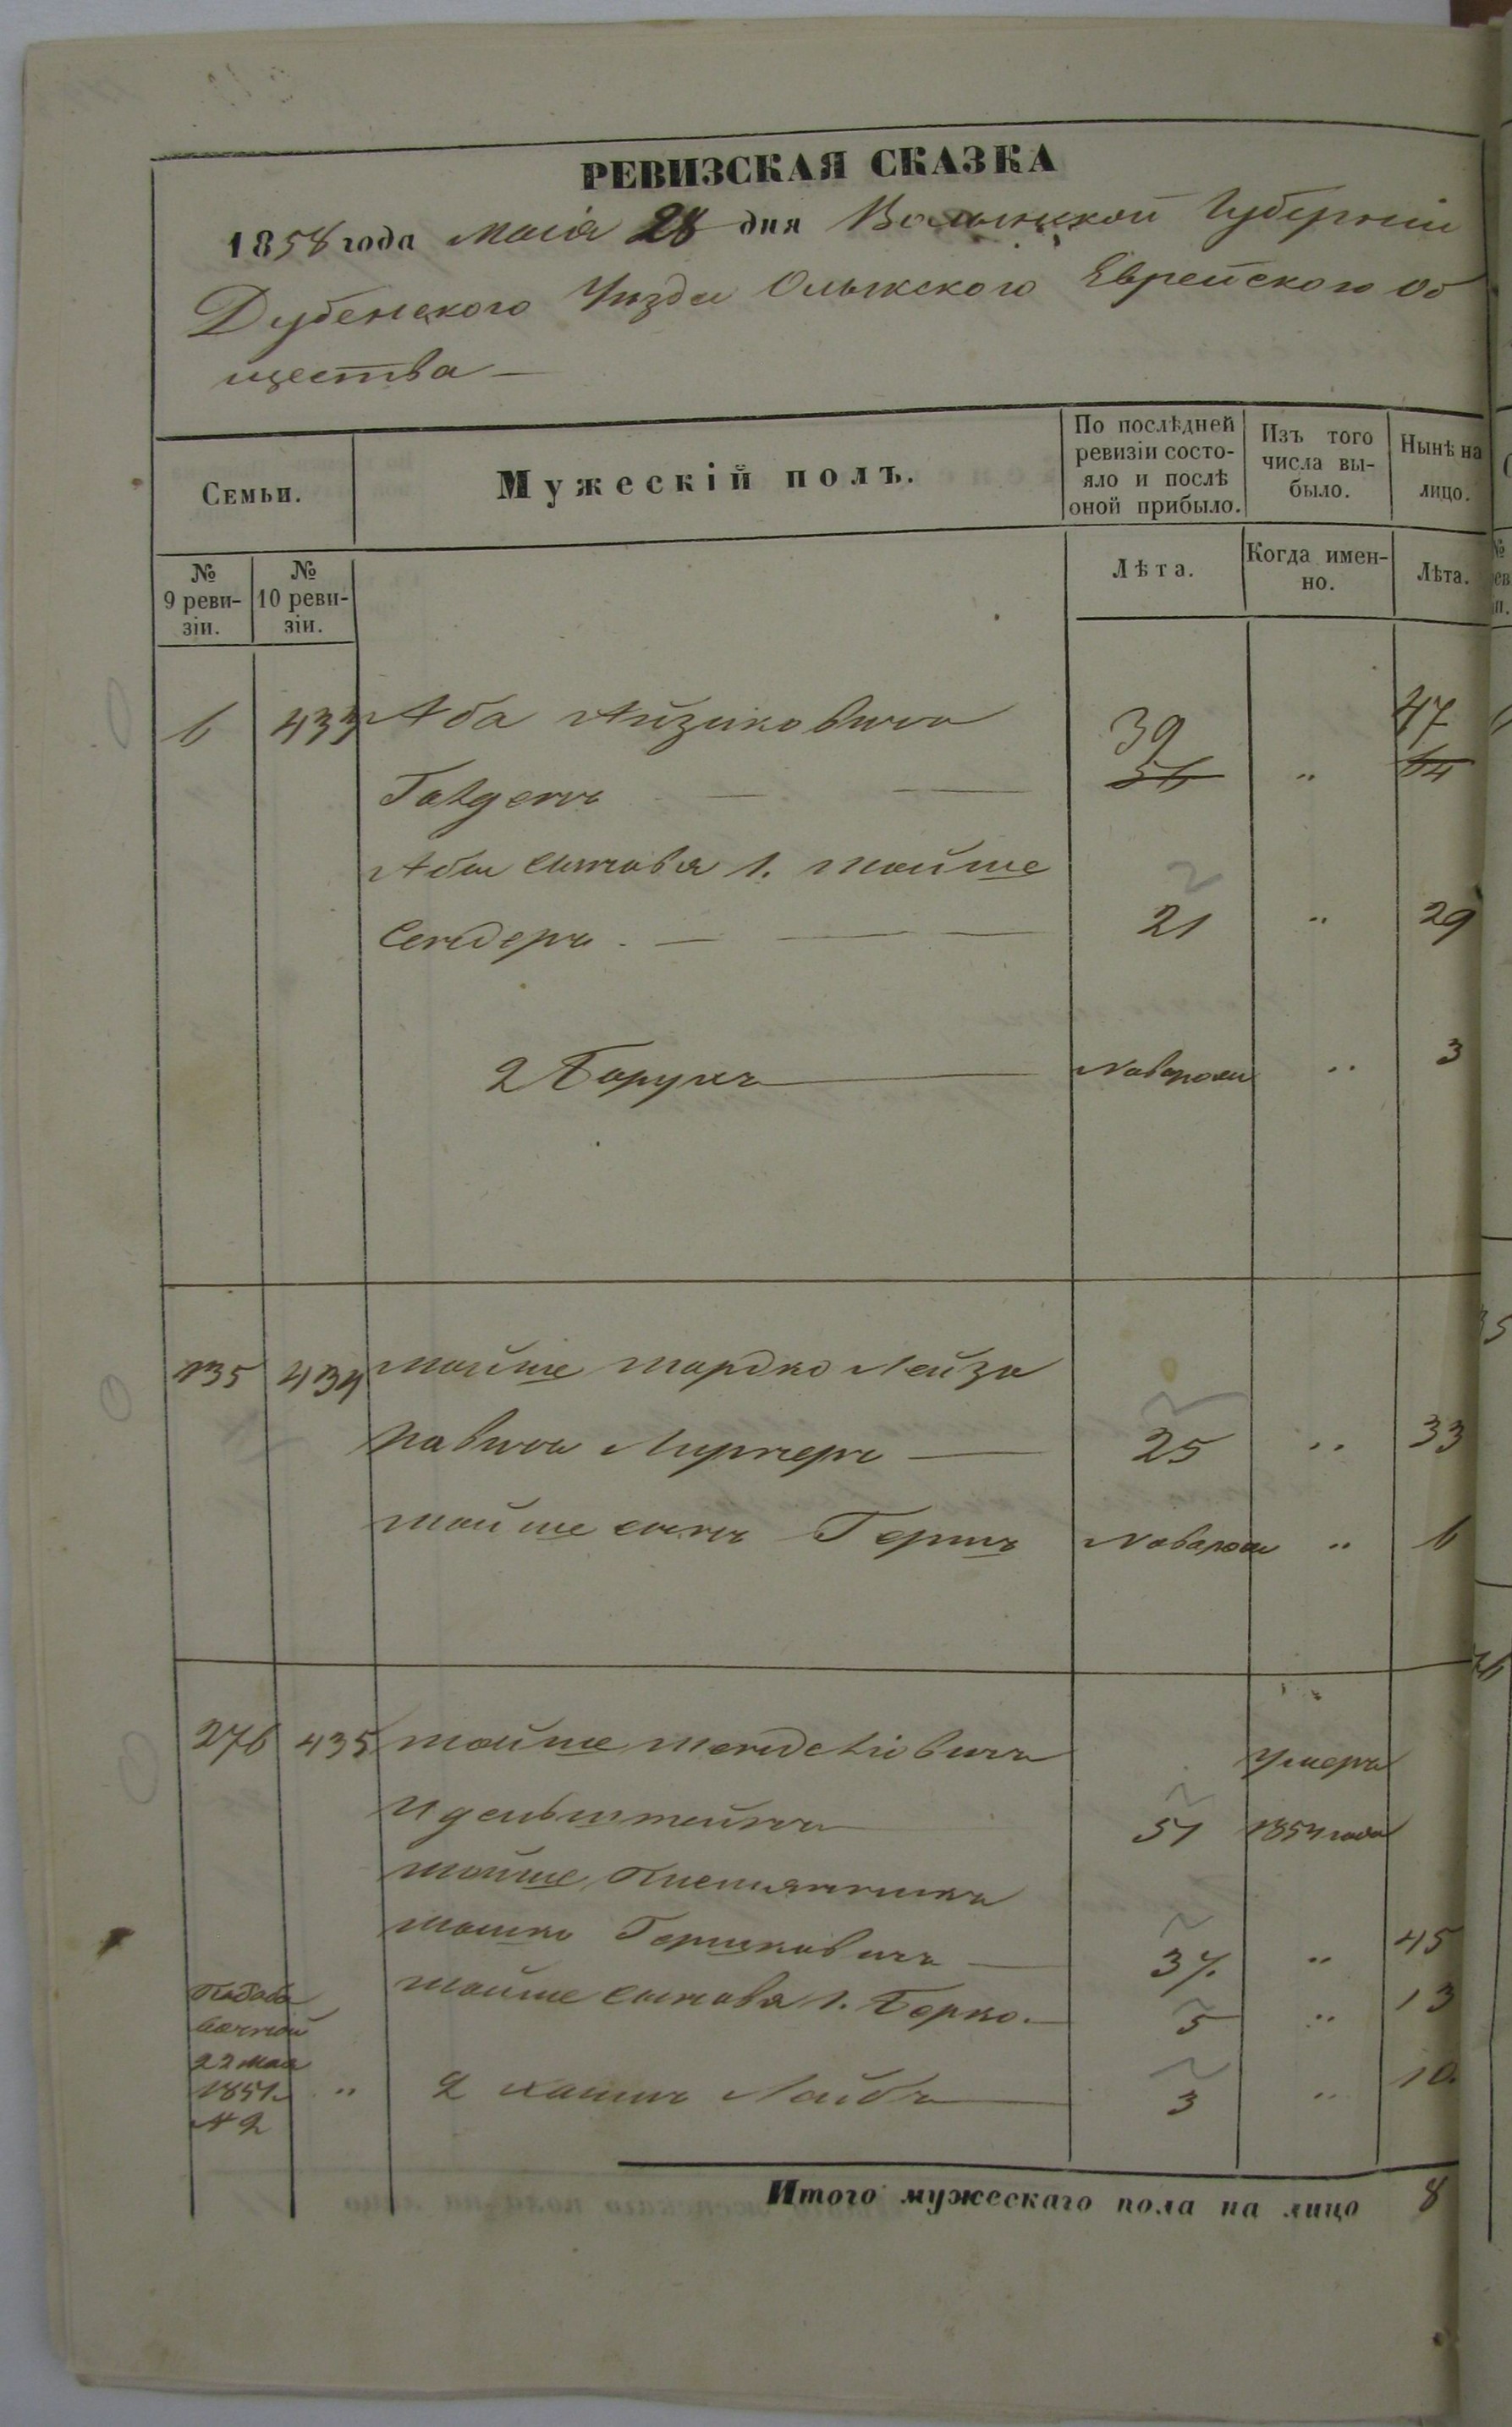 РЕВИЗСКАЯ СКАЗКА
1858 года Маія 28 дня Волынской Губерніи
Дубенского Уизда Олыкского Еврейского Об
щества —
Семьи.
Мужескій полъ.
По послѣдней ревизіи состо-
яло и послѣ
оной прибыло.
Изъ того
числа вы-
было.
Нынѣ на
лицо.
№
9 реви-
зіи.
№
10 реви-
зіи.
Лѣта.
Когда имен-
но.
Лѣта.
6 433 Аба Айзиковичъ 39 47
56 „ 64
Абы сыновья 1. Мойше
Сендеръ — 21 „ 29
2 Борухъ — Новорож „ 3
135 434 Мойше Мордко Лейзо
ровичъ Лернеръ — 25 „ 33
Мойше сынъ Гершъ Новорож „ 6
276 435 Мойше Менделіовичъ умеръ
Идельштейнъ — 51 1854 года
Мойше племянникъ
Мошко Гершковичъ — 37. „ 45
Мойше сыновья 1. Борко. — 5 „ 13
22 мая
1851 „ 2 Хаимъ Лейбъ — 3 „ 10.
№ 2
Итого мужескаго пола на лицо 8